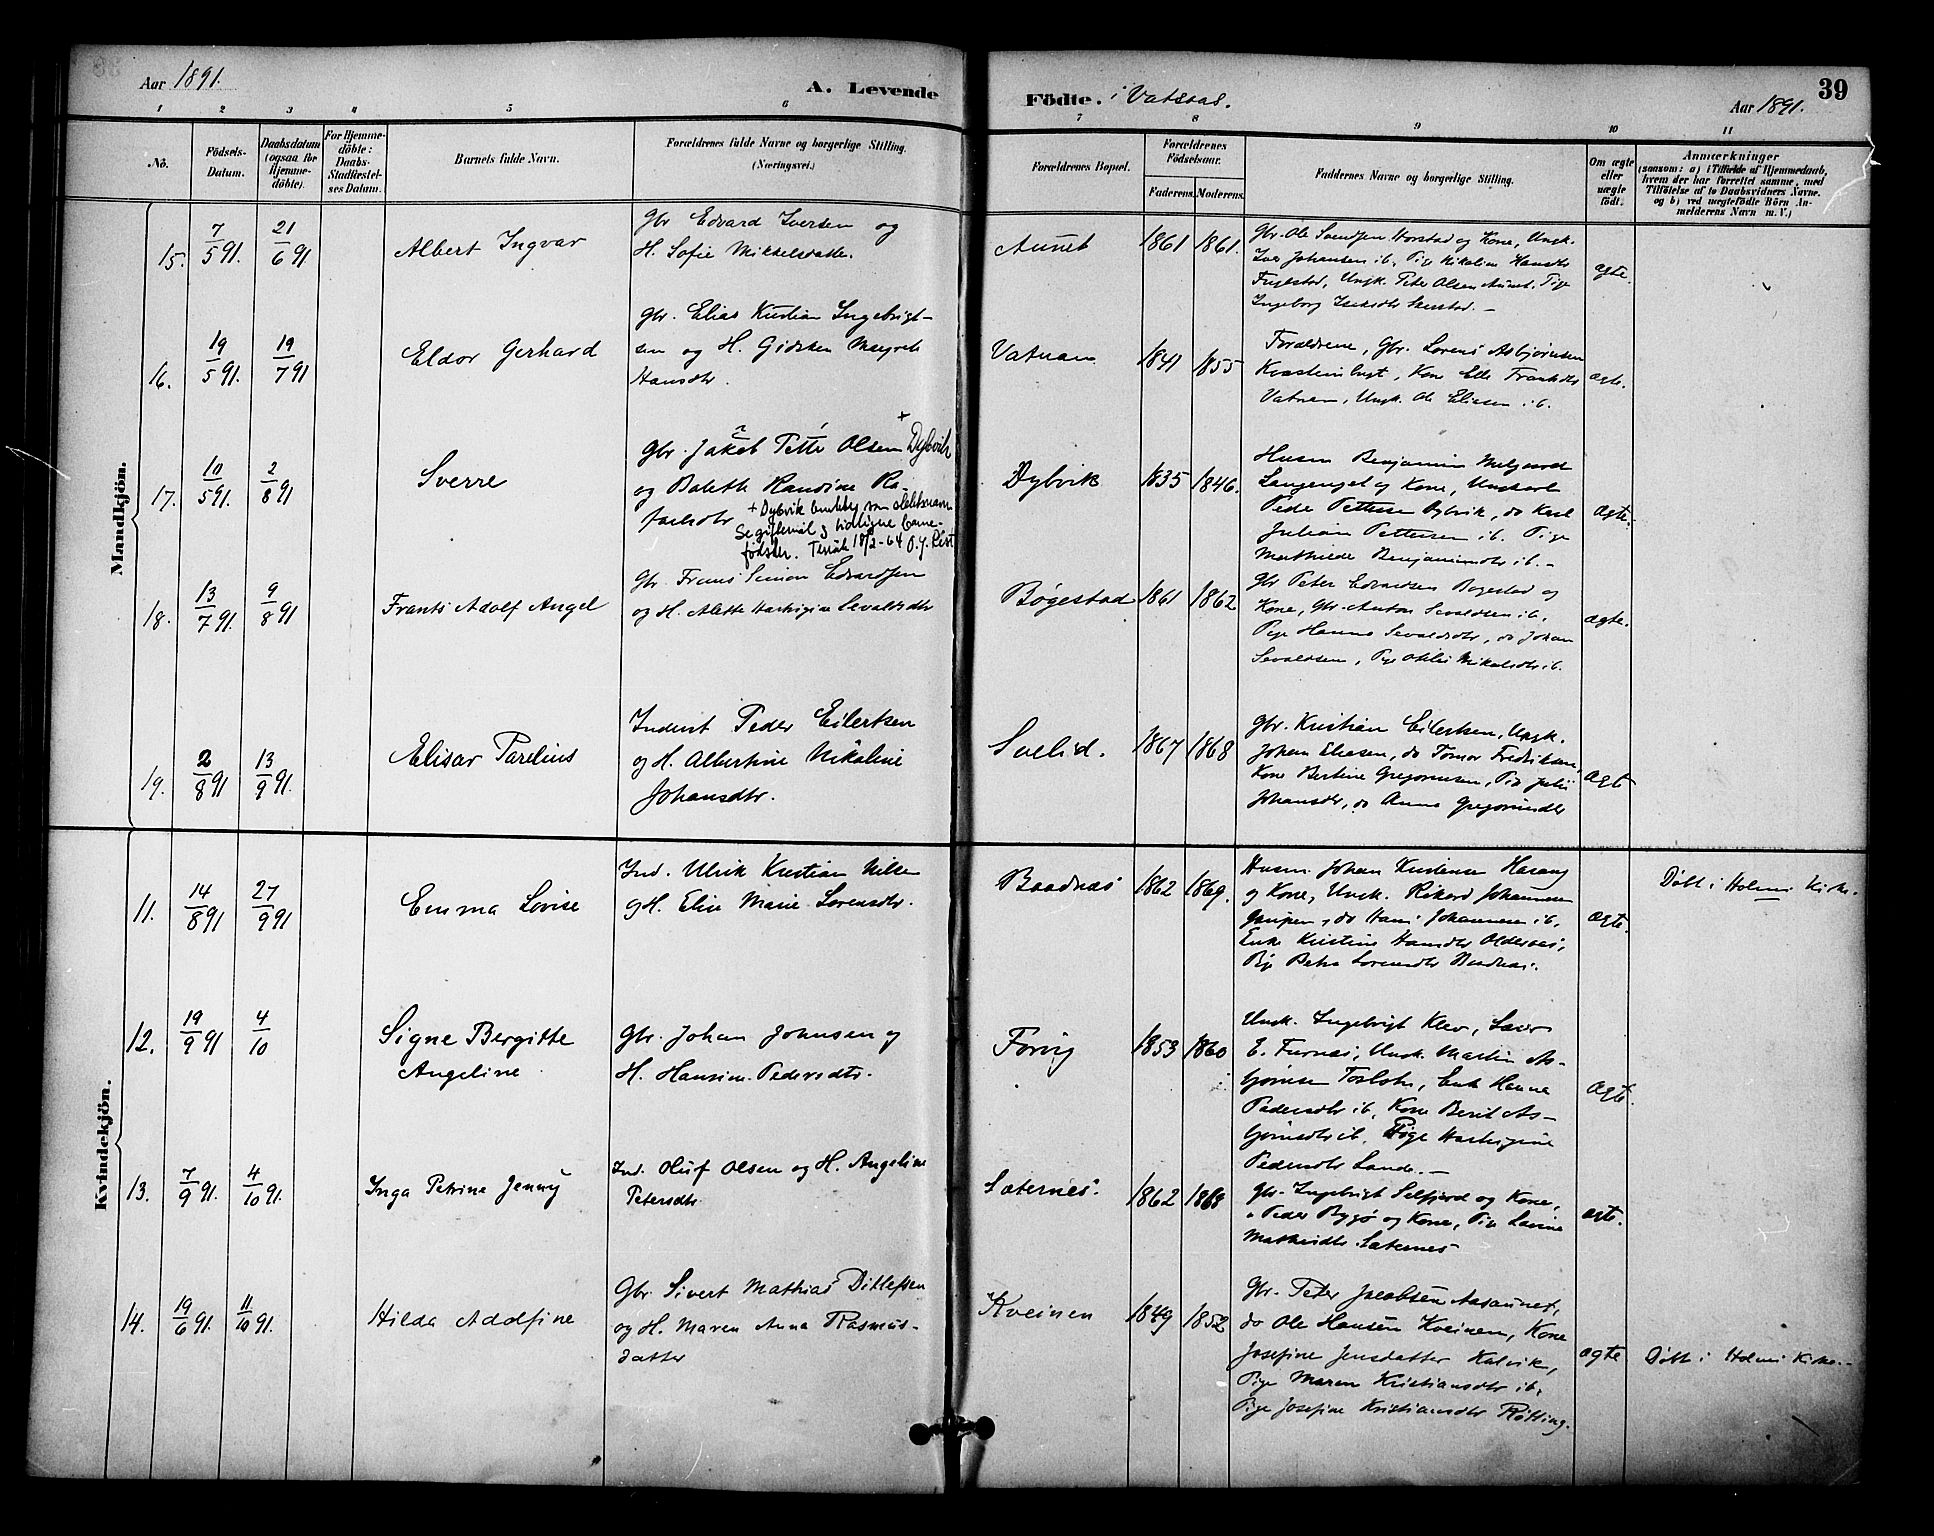 Aar 1891.
A. Levende
1 2 3 4 5 6
No.
Födsels-
Datum.
Daabsdatum
(ogsaa for
Hjemme-
döbte).
For Hjemme-
döbte:
Daabs-
Stadfæstel-
ses Datum.
Barnets fulde Navn.
Forældrenes fulde Navne og borgerlige Stilling.
(Næringsvei.)
Födte. i
Aar 1891.
39
7 8 9 10 11
Forældrenes Bopæl.
Forældrenes
Födselsaar.
Faderens. Moderens.
Faddernes Navne og borgerlige Stilling.
Om ægte
eller
uægte
födt.
Anmærkninger
(saasom: a) i Tilfælde af Hjemmedaab,
hvem der har forrettet samme, med
Tilföielse af to Daabsvidners Navne.
og b) ved uægtefödte Börn An-
melderens Navn m. V.)
Mandkjön.
15. 7/5 91. 21/6 91
Albert Ingvar
Gbr Edvard Iversen og
H. Sofie Mikkelsdatter.
Aunet
1861 1861.
Gbr. Ole Svendsen Horstad og Kone, Ungk.
Iver Johansen ib, Pige Nikoline Hansdtr
Ungk. Peter Olsen Aunet. Pige
Ingeborg
ægte.
16. 19/5 91. 19/7 91
Eldor Gerhard
Gbr. Elias Kristian Ingebrigt-
sen og H. Gidsken Margrete
Hansdtr.
Vatnan
1841 1855
Forældrene, Gbr. Lorens Asbjörnsen
Kone Elle
Vatnan, Ungk. Ole Eliesen ib.
ægte.
17. 10/5 91. 2/8 91
Sverre
Gbr. Jakob Petter Olsen + Dybvik
og Bolette Randine Ra-
faelsdtr + Dybvik som slektsnavn
Se giftemål & tidligere barne-
fødsler. 18/2-64 O.J.
Dybvik
1835 1846.
Husm Benjamin
og Kone, Ungkarl
Peder Pettersen Dybvik, do Karl
Julian Pettersen ib. Pige
Mathilde Benjaminsdtr ib. -
ægte.
18. 13/7 91. 9/8 91
Frants Adolf Angel
Gbr Frans Simon Edvardsen
og H. Alette Hartvigine Sevaldsdtr
Bøgestad
1861 1862
Gbr Peter Edvardsen Bøgestad og
Kone, Gbr. Anton Sevaldsen ib,
Pige Hanna Sevaldsdtr, do Johan
Sevaldsen, Pige Otelie Mikalsdtr ib.
ægte.
19. 2/8 91 13/9 91.
Elisar Parelius
Inderst Peder Eilertsen
og H. Albertine Nikoline
Johansdtr.
Soelid.
1867 1868
Gbr. Kristian Eilertsen, Ungk.
Johan Eliesen, do Tomas Fredriksen,
Kone Bertine Gregoriusen, Pige Julie
Johansdtr, do Anna Gregoriusdtr
Ægte
Kvindekjön.
11. 14/8 91 27/9 91
Emma Lovise
Ind. Ulrik Kristian Nilsen
og H. Elise Marie Lorensdtr.
Baadnæs
1862 1869.
Husm. Johan Kristensen Harang
og Kone, Ungk. Rikard Johannesen
do Hans Johannesen ib.
Enke Kristine Hansdtr
Pige Petra Lorensdtr Baadnæs.
ægte.
Døbt i Holmi Kirke.
12. 19/9 91 4/10
Signe Bergitte
Angeline
Gbr. Johan Johnsen og
H. Hansine Pedersdtr.
Forvig
1853 1860
Ungk. Ingebrigt Klev,
E. Furnæs, Ungk. Martin As-
bjørnsen Enke Hanna
Pedersdtr ib, Kone Berit As-
bjørnsdtr ib. Pige Hartvigine
Pedersdtr Lande. -
ægte.
13. 7/9 91. 4/10 91.
Inga Petrine Jenny
Ind. Oluf Olsen og H. Angeline
Petersdtr.
Sæternes.
1862 1868
Gbr. Ingebrigt Selfjord og Kone,
" Peder Bygø og Kone, Pige Lovise
Mathisdtr. Sæternes
ægte.
14. 19/6 91. 11/10 91.
Hilda Adolfine
Gbr. Sivert Mathias Ditlefsen
og H. Maren Anna Rasmus-
datter
Kveinen
1849 1852
Gbr. Peder Jacobsen Aasaunet,
do Ole Hansen Kveinen, Kone
Josefine Jensdatter Kalvik,
Pige Maren Kristiansdtr ib.
Pige Josefine Kristiansdtr Røtting.
ægte
Døbt i Holmi Kirke. -